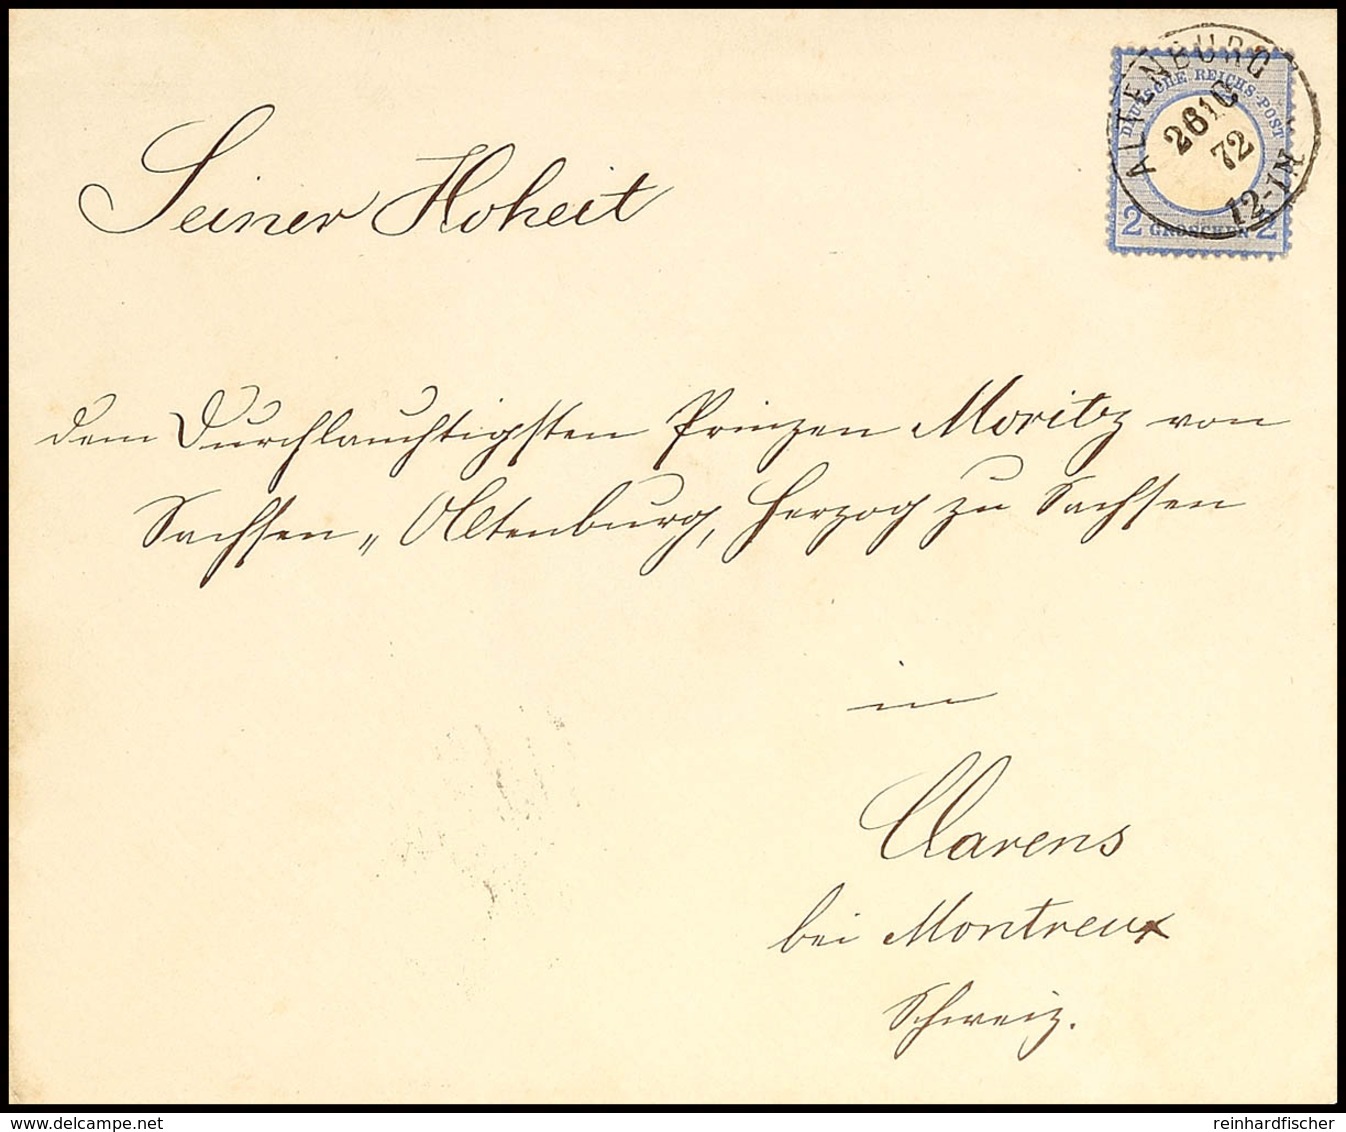 ALTENBURG
26 10
72
12-1N
DEUTSCHE REICHS-POST
2 GROSCHEN 2
Seiner Hoheit
dem Durchlauchtigsten Prinzen Moritz von
Sachsen „ Altenburg, Herzog zu Sachsen
in
Clarens
bei Montreux
Schweiz.
reinhardfischer